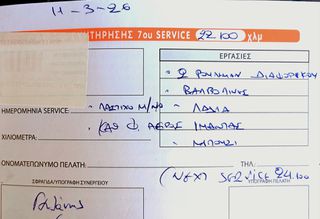 11-3-26
ΤΗΡΗΣΗΣ 7ου SERVICE 22.100 χλμ
ΕΡΓΑΣΙΕΣ
- 2 ΡΟΥΛΜΑΝ ΔΙΑΦΟΡΙΚΟΥ
- ΒΑΛΒΟΛΙΝΕΣ
ΗΜΕΡΟΜΗΝΙΑ SERVICE: - ΛΑΣΤΙΧΟ Μ/
- ΛΑΔΙΑ
ΧΙΛΙΟΜΕΤΡΑ: - ΚΑΘ Φ. ΑΕΡΟΣ ΙΜΑΝΤΑΣ
- ΜΠΟΥΖΙ
ΟΝΟΜΑΤΕΠΩΝΥΜΟ ΠΕΛΑΤΗ:
ΤΗΛ:
(NEXT SERVICE 24.100
ΣΦΡΑΓΙΔΑ/ΥΠΟΓΡΑΦΗ ΣΥΝΕΡΓΕΙΟΥ
ΥΠΟΓΡΑΦΗ ΠΕΛΑΤΗ